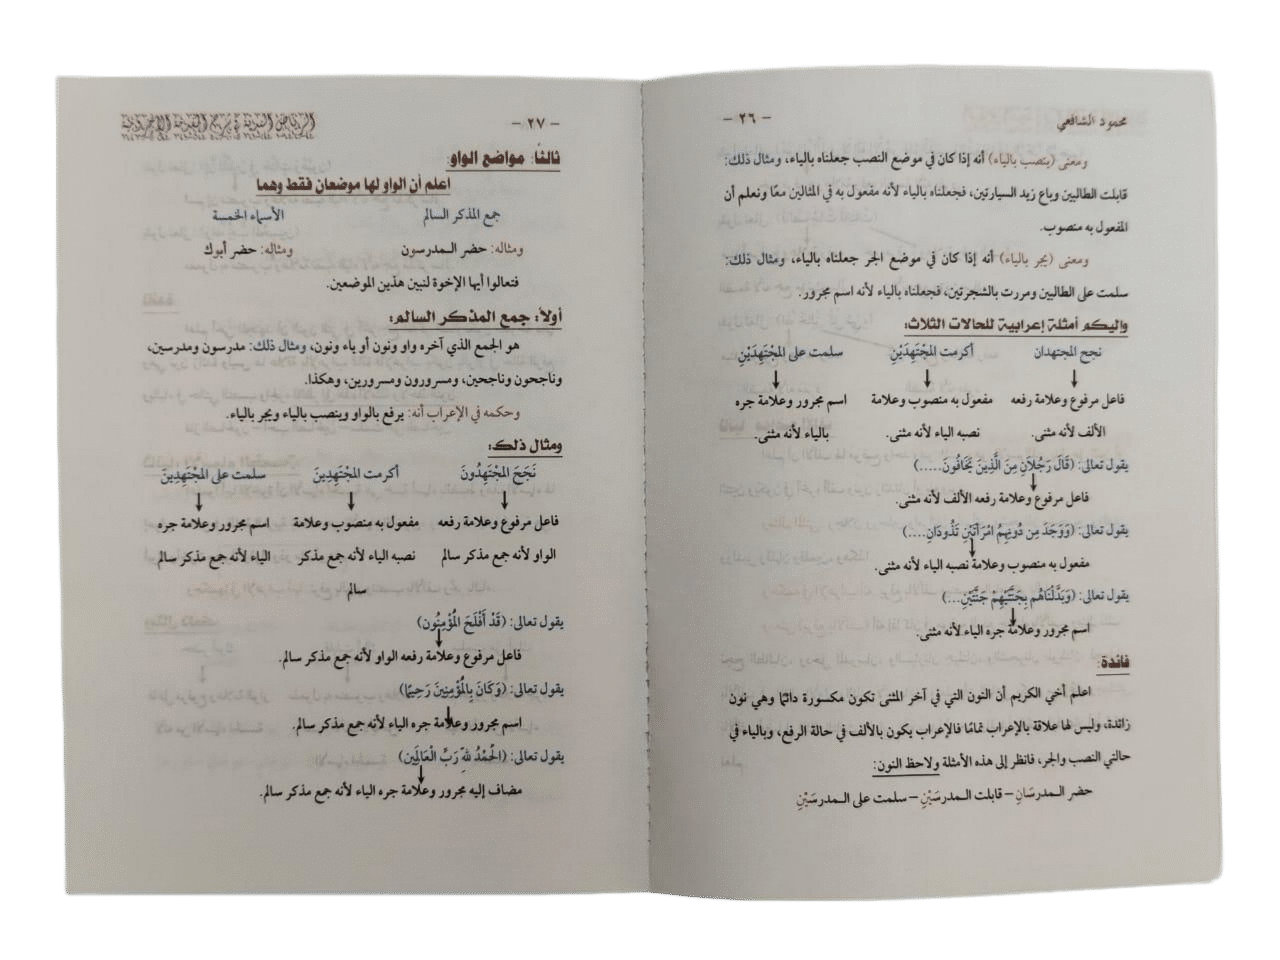 محمود الشافعي
– ٢٦ –
ومعنى (ينصب بالياء) أنه إذا كان في موضع النصب جعلناه بالياء، ومثال ذلك:
قابلت الطالبين وباع زيد السيارتين، فجعلناه بالياء لأنه مفعول به في المثالين معًا ونعلم أن
المفعول به منصوب.
ومعنى (يجر بالياء) أنه إذا كان في موضع الجر جعلناه بالياء، ومثال ذلك:
سلمت على الطالبين ومررت بالشجرتين، فجعلناه بالياء لأنه اسم مجرور.
وإليكم أمثلة إعرابية للحالات الثلاث:
نجح المجتهدان أكرمت المجْتَهِدَيْنِ سلمت على المجْتَهِدَيْنِ
فاعل مرفوع وعلامة رفعه مفعول به منصوب وعلامة اسم مجرور وعلامة جره
الألف لأنه مثنى. نصبه الياء لأنه مثنى. بالياء لأنه مثنى.
يقول تعالى: (قَالَ رَجُلَانِ مِنَ الَّذِينَ يَخَافُونَ.....)
فاعل مرفوع وعلامة رفعه الألف لأنه مثنى.
يقول تعالى: (وَوَجَدَ مِن دُونِهِمُ امْرَأَتَيْنِ تَذُودَانِ....)
مفعول به منصوب وعلامة نصبه الياء لأنه مثنى.
يقول تعالى: (وَبَدَّلْنَاهُم بِجَنَّتَيْهِمْ جَنَّتَيْنِ...)
اسم مجرور وعلامة جره الياء لأنه مثنى.
فائدة:
اعلم أخي الكريم أن النون التي في آخر المثنى تكون مكسورة دائمًا وهي نون
زائدة، وليس لها علاقة بالإعراب تمامًا فالإعراب يكون بالألف في حالة الرفع، وبالياء في
حالتي النصب والجر، فانظر إلى هذه الأمثلة ولاحظ النون:
حضر المدرسَانِ – قابلت المدرسَيْنِ – سلمت على المدرسَيْنِ
– ٢٧ –
ثالثاً: مواضع الواو:
اعلم أن الواو لها موضعان فقط وهما
جمع المذكر السالم الأسماء الخمسة
ومثاله: حضر المدرسون ومثاله: حضر أبوك
فتعالوا أيها الإخوة لنبين هذين الموضعين.
أولاً: جمع المذكر السالم:
هو الجمع الذي آخره واو ونون أو ياء ونون، ومثال ذلك: مدرسون ومدرسين،
وناجحون وناجحين، ومسرورون ومسرورين، وهكذا.
وحكمه في الإعراب أنه: يرفع بالواو وينصب بالياء ويجر بالياء.
ومثال ذلك:
نَجَحَ المجْتَهِدُونَ أكرمت المجْتَهِدِينَ سلمت على المجْتَهِدِينَ
فاعل مرفوع وعلامة رفعه مفعول به منصوب وعلامة اسم مجرور وعلامة جره
الواو لأنه جمع مذكر سالم نصبه الياء لأنه جمع مذكر الياء لأنه جمع مذكر سالم
سالم
يقول تعالى: (قَدْ أَفْلَحَ الْمُؤْمِنُونَ)
فاعل مرفوع وعلامة رفعه الواو لأنه جمع مذكر سالم.
يقول تعالى: (وَكَانَ بِالْمُؤْمِنِينَ رَحِيمًا)
اسم مجرور وعلامة جره الياء لأنه جمع مذكر سالم.
يقول تعالى: (الْحَمْدُ لله رَبِّ الْعَالَمِينَ)
مضاف إليه مجرور وعلامة جره الياء لأنه جمع مذكر سالم.